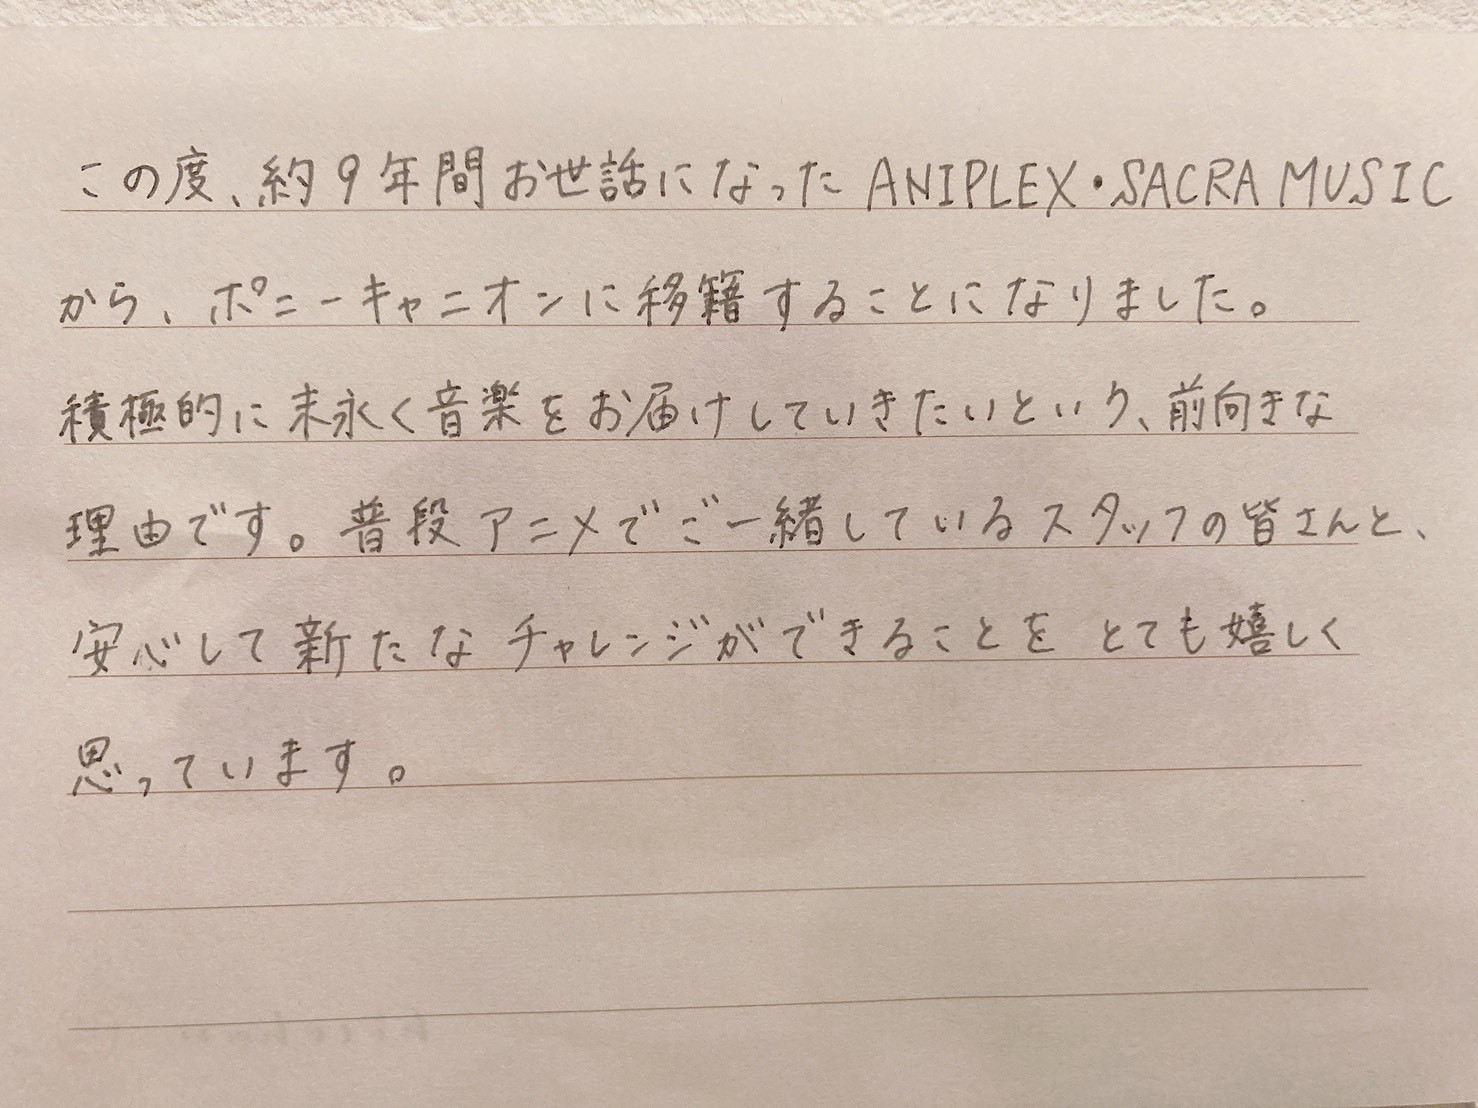 この度、約9年間お世話になったANIPLEX・SACRA MUSIC
から、ポニーキャニオンに移籍することになりました。
積極的に末永く音楽をお届けしていきたいという、前向きな
理由です。普段アニメでご一緒しているスタッフの皆さんと、
安心して新たなチャレンジができることをとても嬉しく
思っています。